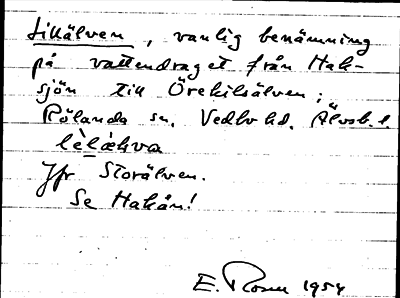 Lillälven, vanlig benämning
på vattendraget från Hak-
sjön till Örekilsälven;
Rölanda sn. Vedbo hd. Älvsb. l.
lèlǽlva
Jfr Storälven.
Se Hakån!
E. Rosen 1954